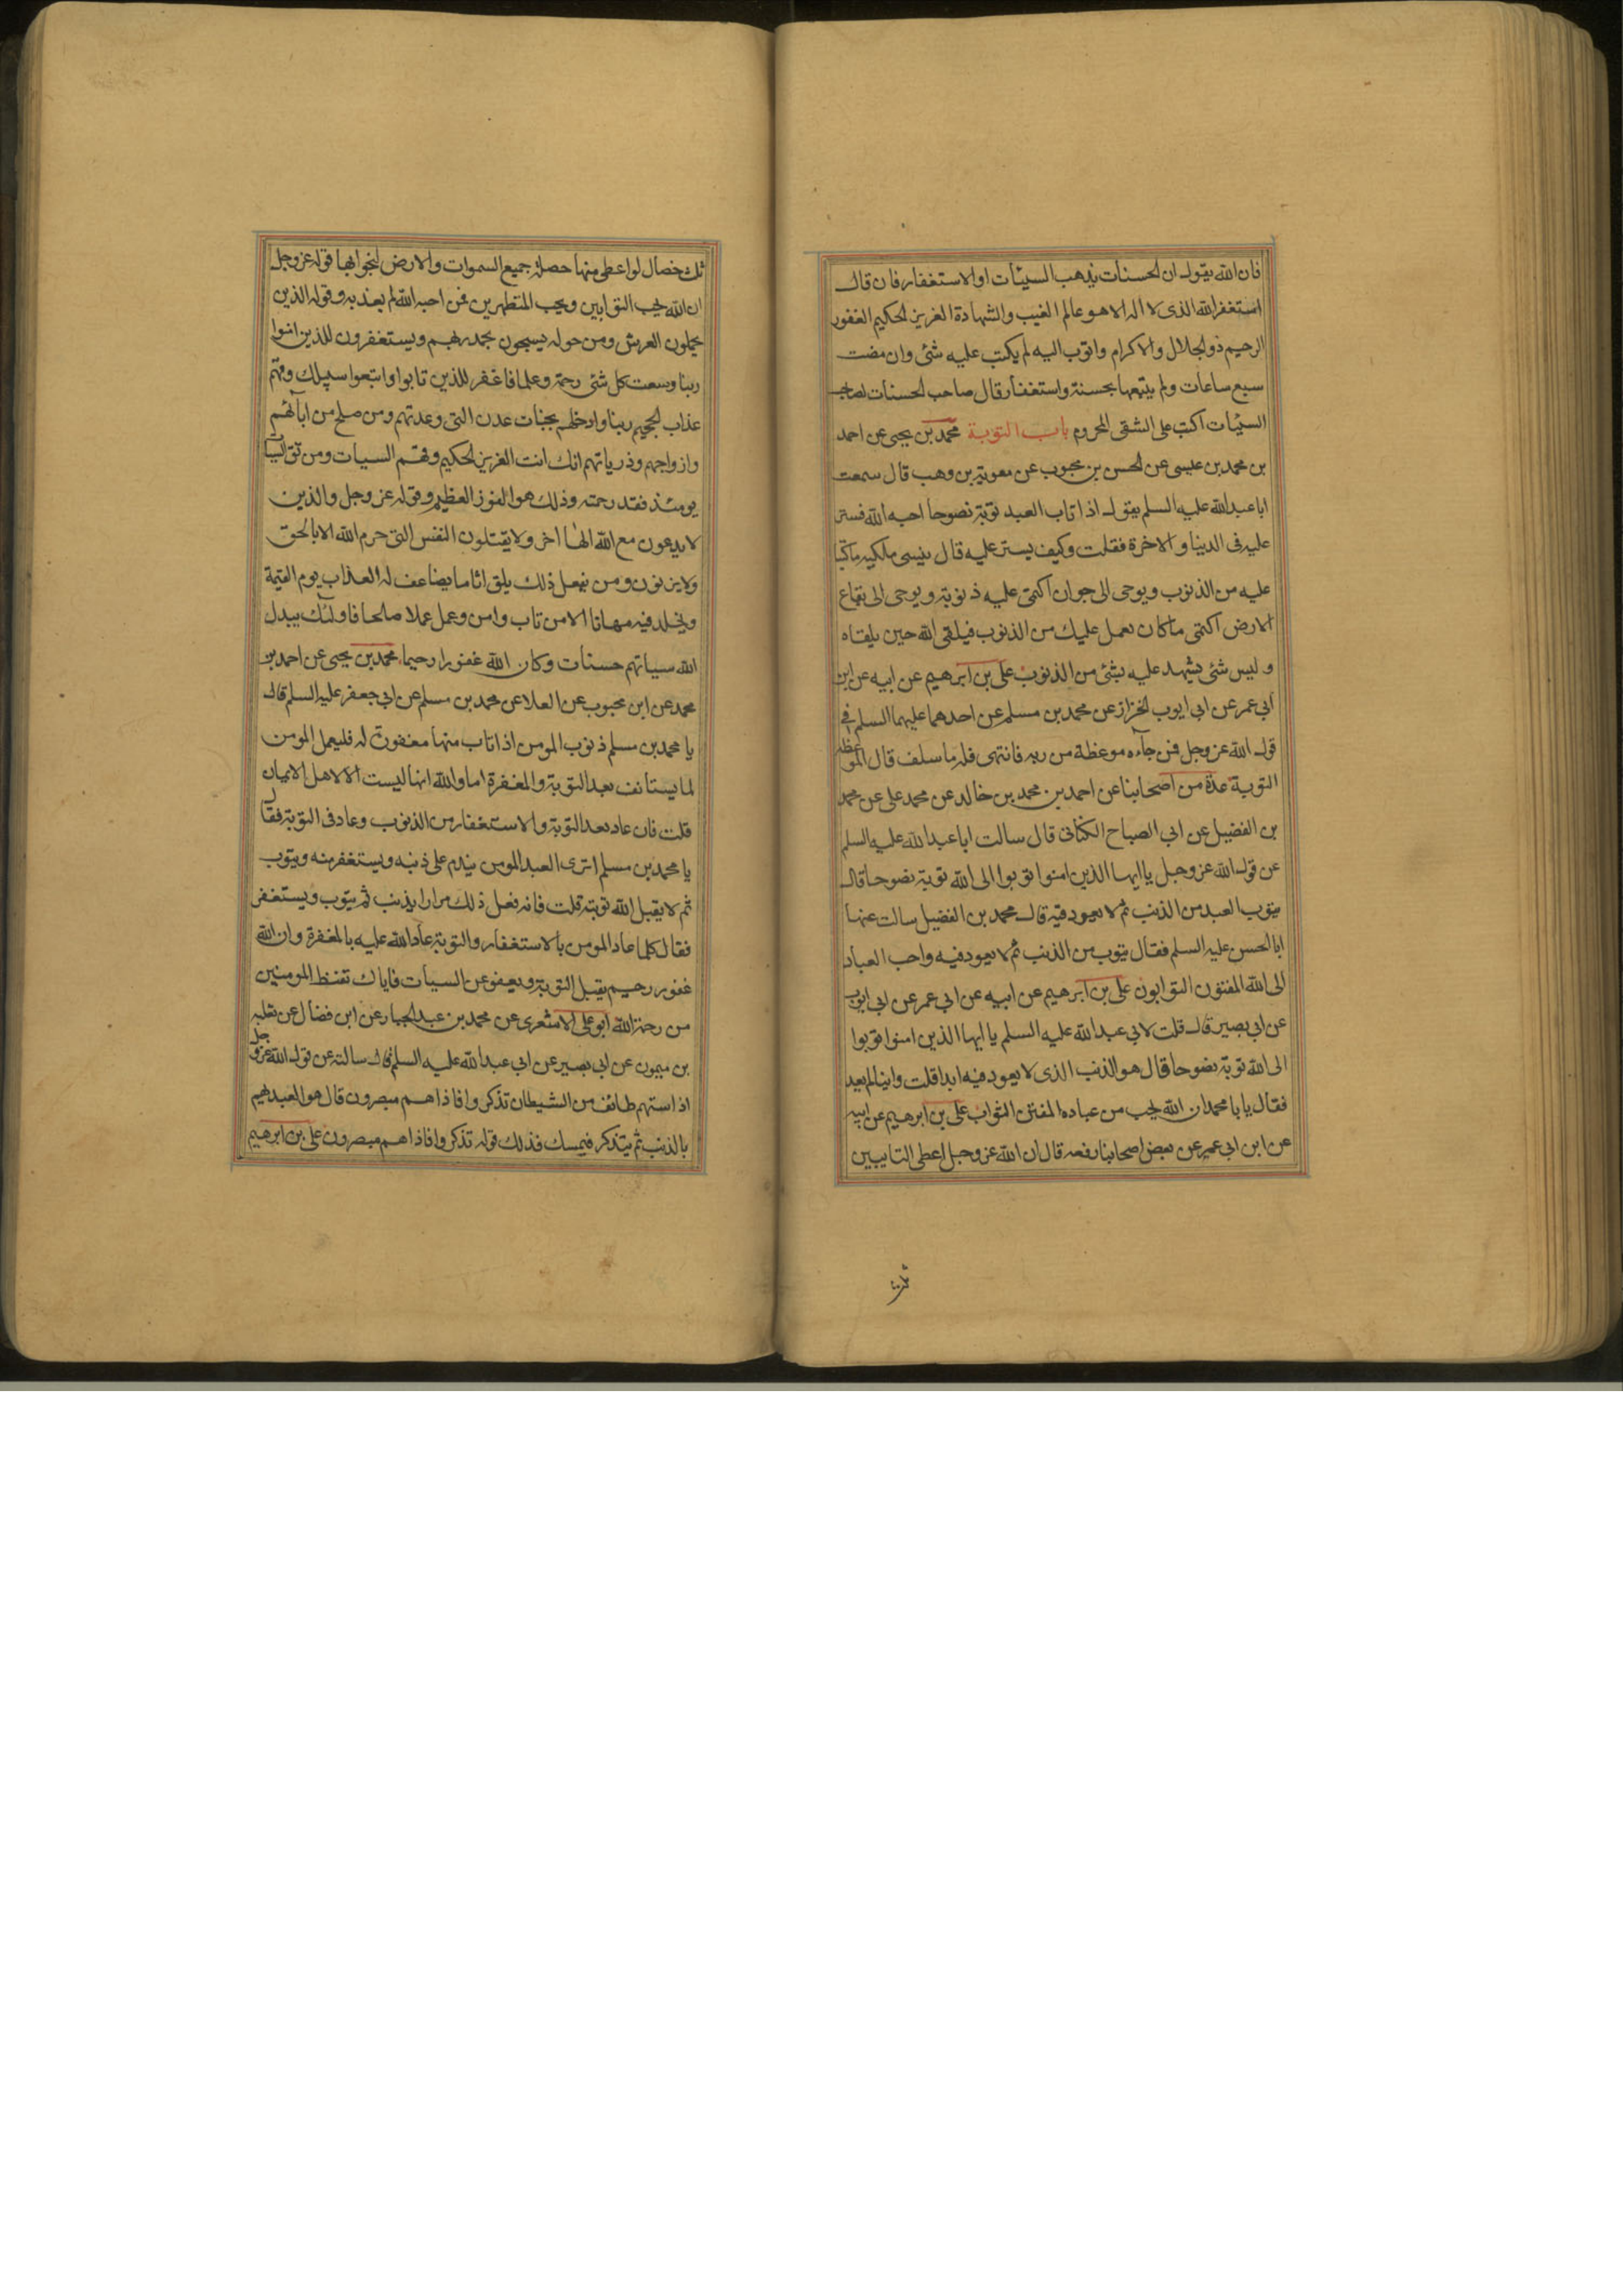 فان الله يقول ان الحسنات يذهب السيئات او الاستغفار فان قال
استغفر الله الذى لا اله الا هو عالم الغيب والشهادة العزيز الحكيم الغفور
الرحيم ذو الجلال والاكرام واتوب اليه لم يكتب عليه شئ وان مضت
سبع ساعات ولم يتبعها بحسنة واستغفار قال صاحب الحسنات لصاحب
السيئات اكتب على الشقى المحروم باب التوبة محمد بن يحيى عن احمد
بن محمد بن عيسى عن الحسن بن محبوب عن معوية بن وهب قال سمعت
ابا عبد الله عليه السلم يقول اذا تاب العبد توبة نصوحا احبه الله فستر
عليه فى الدنيا والاخرة فقلت وكيف يستر عليه قال ينسى ملكيه ما كتبا
عليه من الذنوب ويوحى الى جوارح اكتمى عليه ذنوبه ويوحى الى بقاع
الارض اكتمى ما كان يعمل عليك من الذنوب فيلقى الله حين يلقاه
وليس شئ يشهد عليه بشئ من الذنوب على بن ابرهيم عن ابيه عن ابن
ابى عمر عن ابى ايوب الخزاز عن محمد بن مسلم عن احدهما عليهما السلم فى
قول الله عز وجل فمن جاءه موعظة من ربه فانتهى فله ما سلف قال الموعظة
التوبة عدة من اصحابنا عن احمد بن محمد بن خالد عن محمد على عن محمد
بن الفضيل عن ابى الصباح الكنانى قال سالت ابا عبد الله عليه السلم
عن قول الله عز وجل يا ايها الذين امنوا توبوا الى الله توبة نصوحا قال
يتوب العبد من الذنب ثم لا يعود فيه قال محمد بن الفضيل سالت عنها
ابا الحسن عليه السلم فقال يتوب من الذنب ثم لا يعود فيه واحب العباد
الى الله المفتنون التوابون على بن ابرهيم عن ابيه عن ابى عمر عن ابى ايوب
عن ابى بصير قال قلت لابى عبد الله عليه السلم يا ايها الذين امنوا توبوا
الى الله توبة نصوحا قال هو الذنب الذى لا يعود فيه ابدا قلت واينا لم يعد
فقال يا با محمد ان الله يحب من عباده المفتن التواب على بن ابرهيم عن ابيه
عن ابن ابى عمير عن بعض اصحابنا رفعه قال ان الله عز وجل اعطى التايبين
ثلث خصال لو اعطى منها حصلة جميع السموات والارض لنجوا بها قوله عز وجل
ان الله يحب التوابين ويحب المتطهرين فمن احبه الله لم يعذبه وقوله الذين
يحملون العرش ومن حوله يسبحون بحمد ربهم ويستغفرون للذين امنوا
ربنا وسعت كل شئ رحمة وعلما فاغفر للذين تابوا واتبعوا سبيلك وقهم
عذاب الجحيم ربنا وادخلهم بجنات عدن التى وعدتهم ومن صلح من ابائهم
وازواجهم وذرياتهم انك انت العزيز الحكيم وقهم السيات ومن تق السيات
يومئذ فقد رحمته وذلك هو الفوز العظيم وقوله عز وجل والذين
لا يدعون مع الله الها اخر ولا يقتلون النفس التى حرم الله الا بالحق
ولا يزنون ومن يفعل ذلك يلق اثاما يضاعف له العذاب يوم القيمة
ويخلد فيه مهانا الا من تاب وامن وعمل عملا صالحا فاولئك يبدل
الله سياتهم حسنات وكان الله غفورا رحيما محمد بن يحيى عن احمد بن
محمد عن ابن محبوب عن العلا عن محمد بن مسلم عن ابى جعفر عليه السلم قال
يا محمد بن مسلم ذنوب المومن اذا تاب منها مغفورة له فليعمل المومن
لما يستانف بعد التوبة والمغفرة اما والله انها ليست الا لاهل الايمان
قلت فان عاد بعد التوبة والاستغفار من الذنوب وعاد فى التوبة فقال
يا محمد بن مسلم اترى العبد المومن يندم على ذنبه ويستغفر منه ويتوب
ثم لا يقبل الله توبته قلت فانه فعل ذلك مرارا يذنب ثم يتوب ويستغفر
فقال كلما عاد المومن بالاستغفار والتوبة عاد الله عليه بالمغفرة وان الله
غفور رحيم يقبل التوبة ويعفو عن السيات فاياك تقنط المومنين
من رحمة الله ابو على الاشعرى عن محمد بن عبد الجبار عن ابن فضال عن ثعلبه
بن ميمون عن ابى بصير عن ابى عبد الله عليه السلم قال سالته عن قول الله عز وجل
اذا ستهم طائف من الشيطان تذكروا فاذا هم مبصرون قال هو العبد يهم
بالذنب ثم يتذكر فيمسك فذلك قوله تذكروا فاذا هم مبصرون على بن ابرهيم